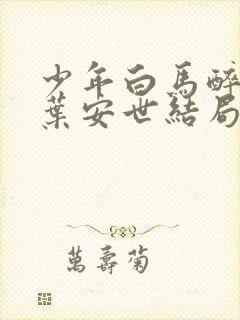 少年白馬醉
葉安世結局
萬壽菊